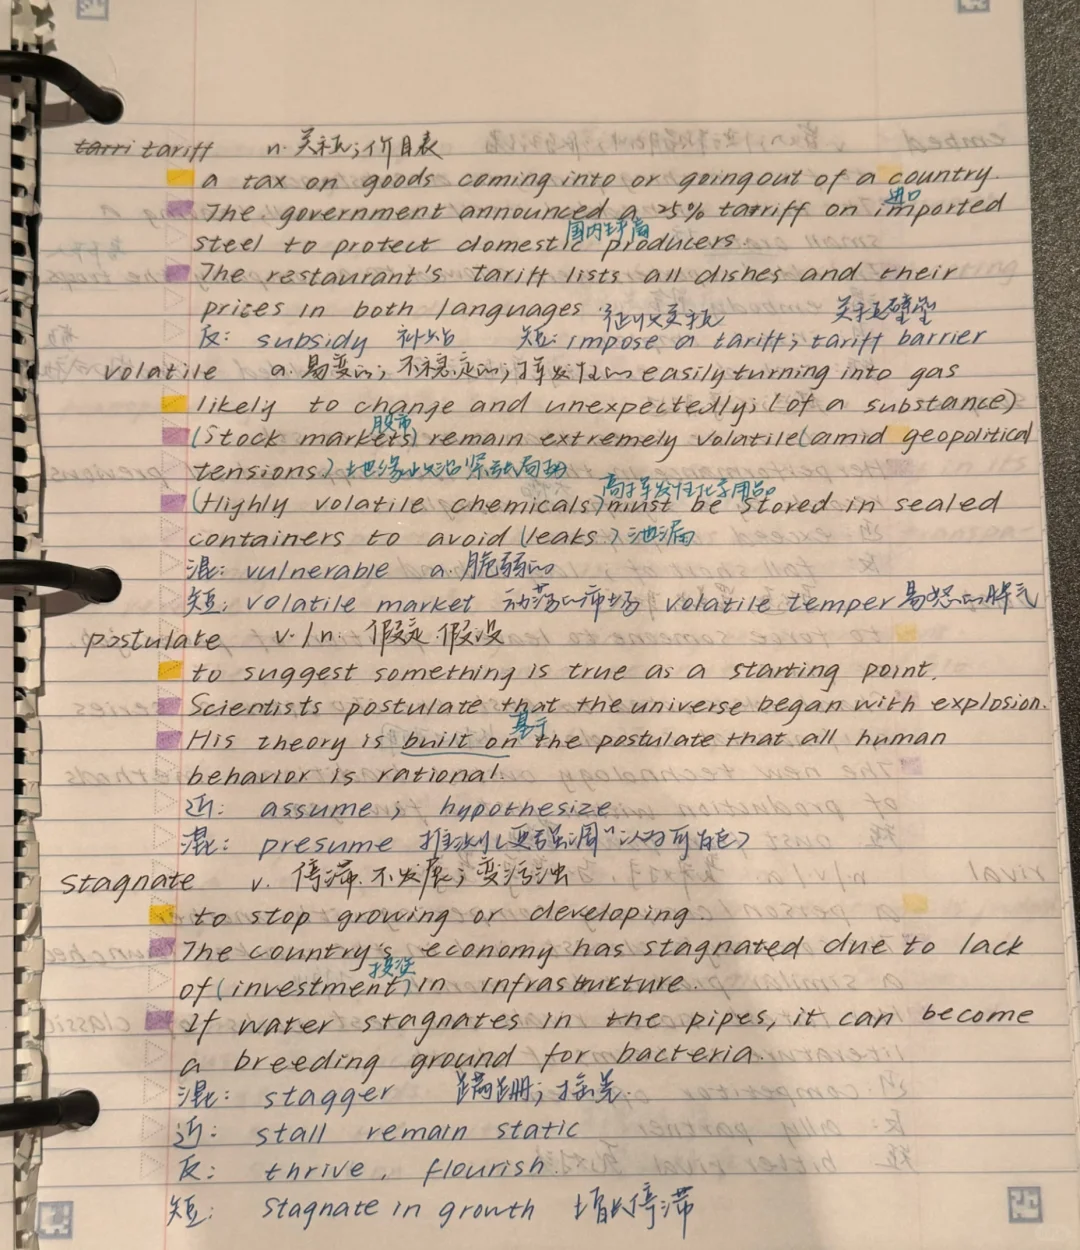 tarri tariff n. 关税;价目表
a tax on goods coming into or going out of a country.
进口
The government announced a 25% tariff on imported
国内生产商
steel to protect domestic producers.
The restaurant's tariff lists all dishes and their
prices in both languages 征收关税 关税壁垒
反: subsidy 补贴 短: impose a tariff; tariff barrier
volatile a. 易变的; 不稳定的; 挥发性的 easily turning into gas
likely to change and unexpectedly; (of a substance)
股市
(Stock markets) remain extremely volatile (amid geopolitical
tensions.) 地缘政治紧张局势
高挥发性化学用品。
(Highly volatile chemicals) must be stored in sealed
containers to avoid (leaks.) 泄漏
混: vulnerable a. 脆弱的
短: volatile market 动荡的市场 volatile temper 易怒的脾气
postulate v./n. 假定 假设
to suggest something is true as a starting point.
Scientists postulate that the universe began with explosion.
基于
His theory is built on the postulate that all human
behavior is rational
近: assume; hypothesize
混: presume 推测(更强调"认为可能)
stagnate v. 停滞.不发展; 变污浊
to stop growing or developing.
The country's economy has stagnated due to lack
投资
of (investment) in infrastructure.
If water stagnates in the pipes, it can become
a breeding ground for bacteria.
混: stagger 蹒跚; 摇晃.
近: stall remain static
反: thrive, flourish.
短: stagnate in growth 增长停滞